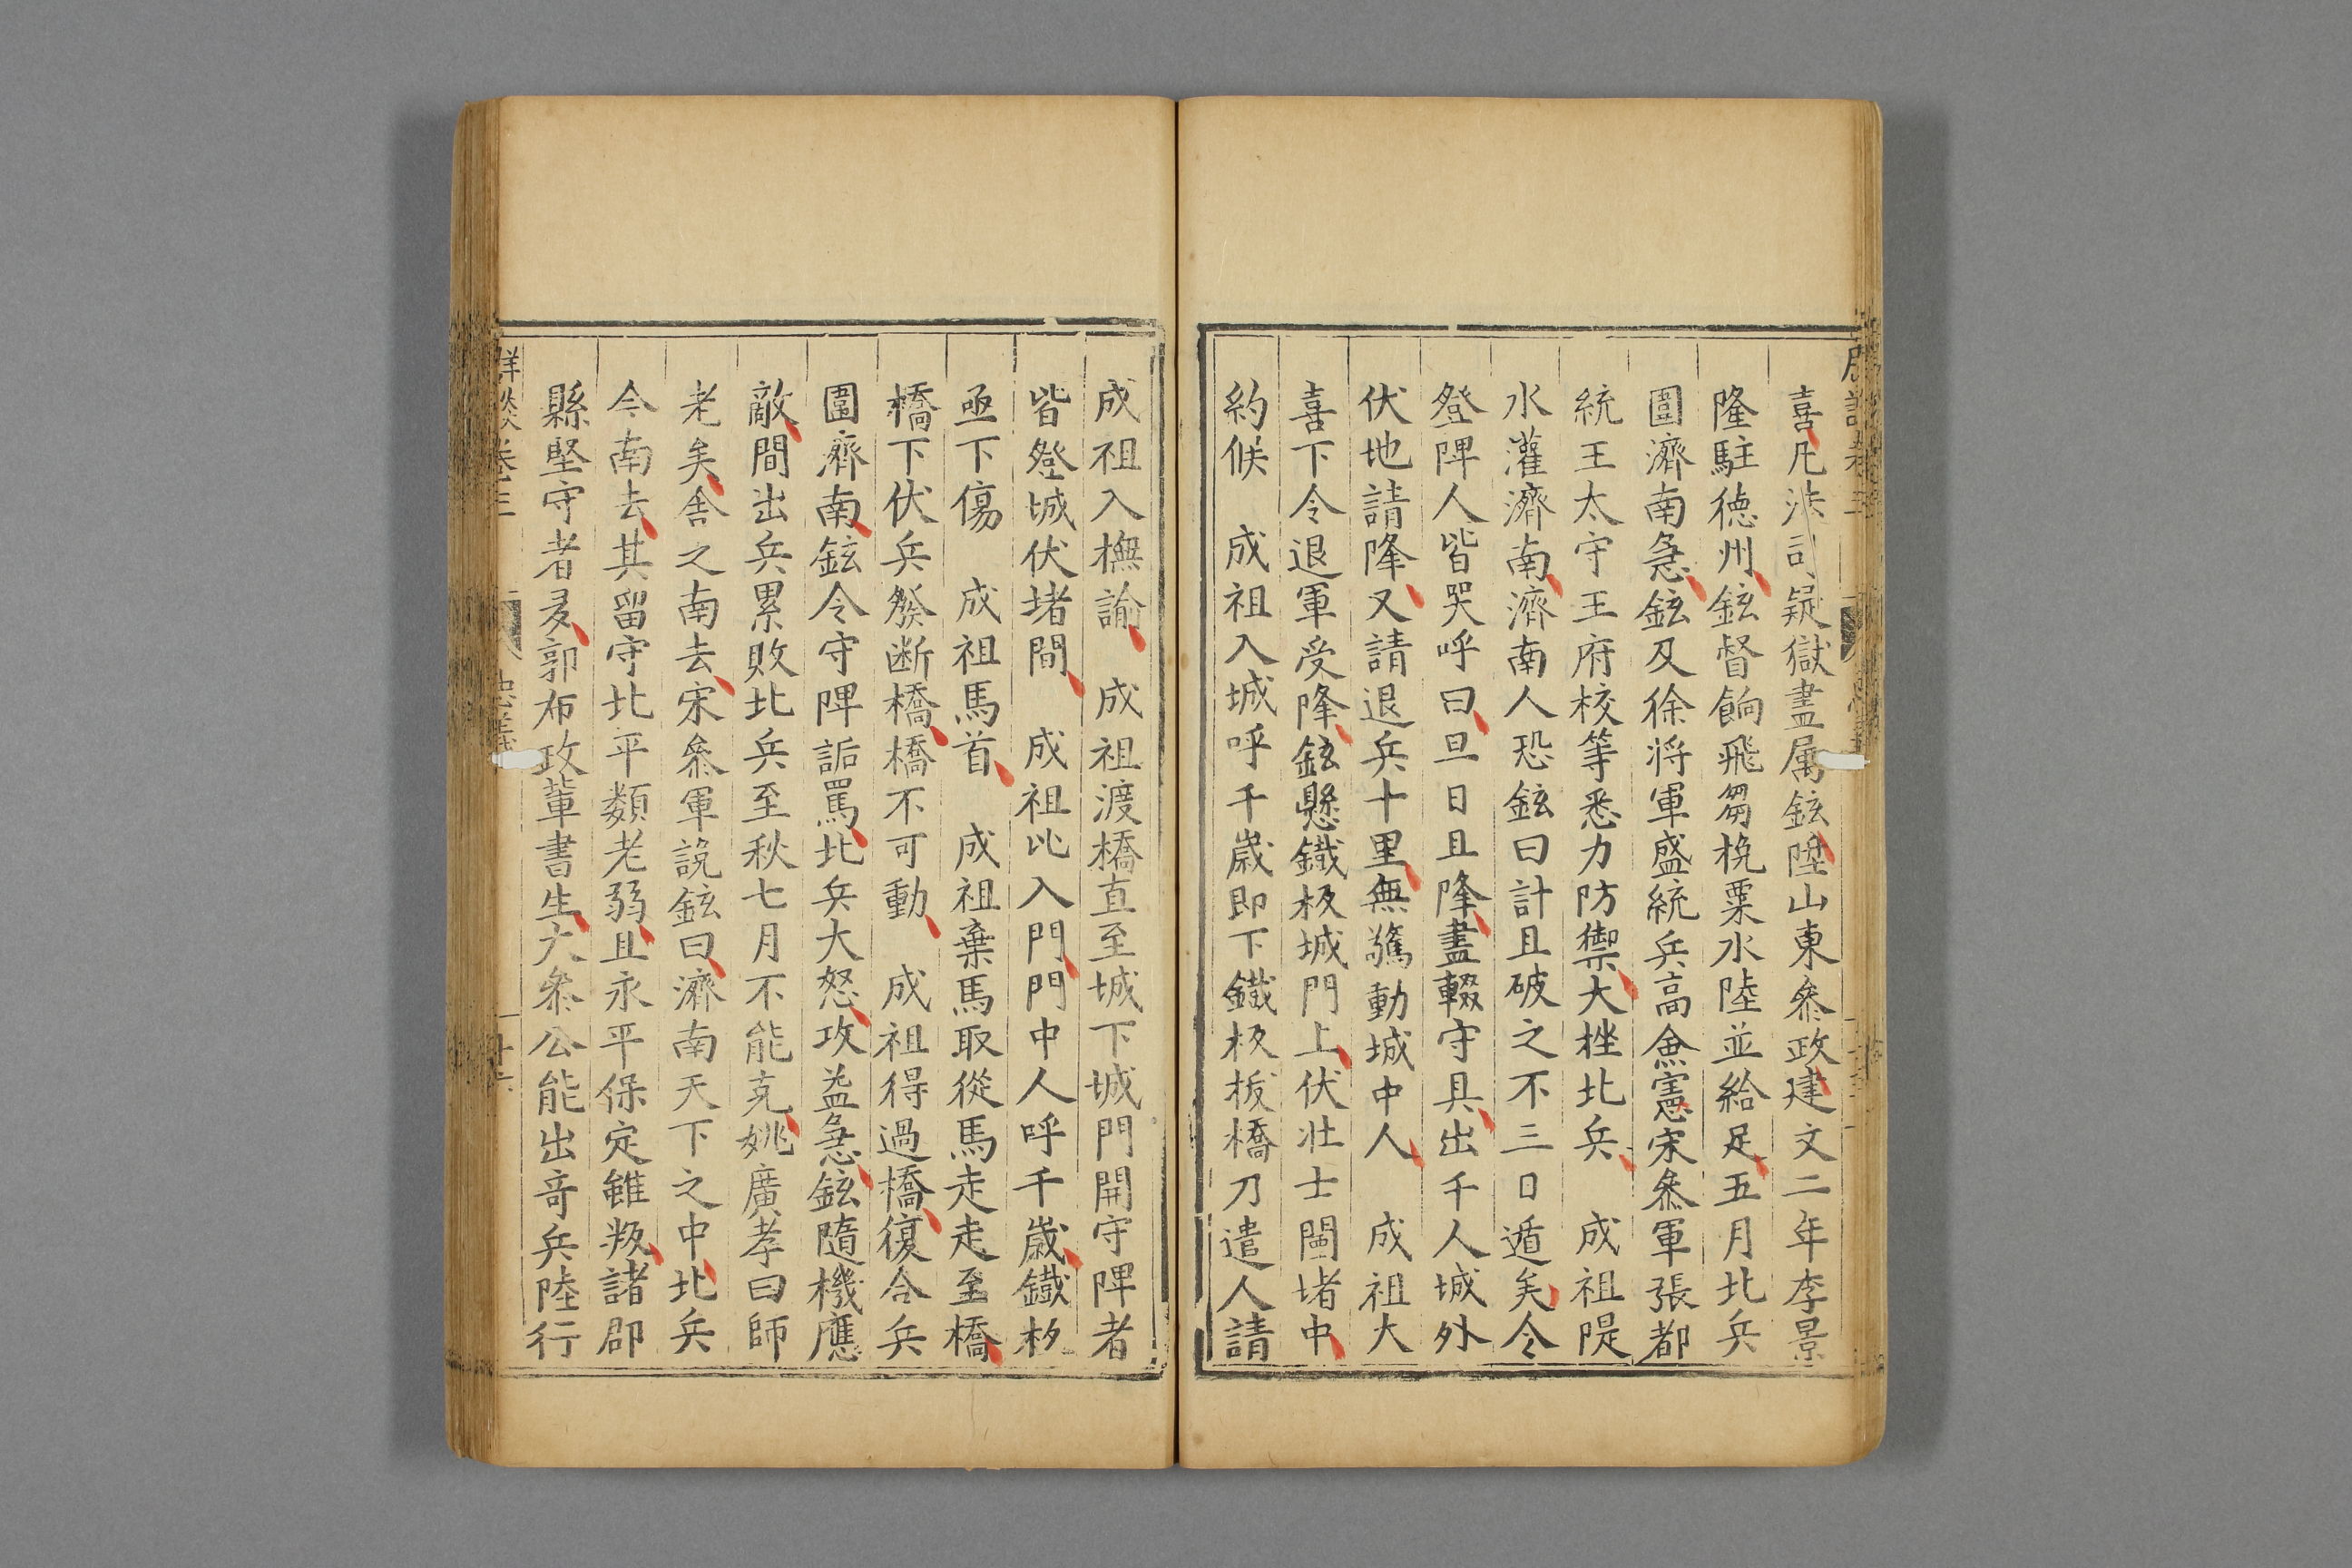 喜凡法司疑獄盡属鉉陞山東叅政建文二年李景
隆駐德州鉉督餉飛芻挽粟水陸並給足五月北兵
圍濟南急鉉及徐将軍盛統兵高僉憲宋叅軍張都
統王太守王府校等悉力防禦大挫北兵　成祖隄
水灌濟南濟南人恐鉉曰計且破之不三日遁矣令
登陴人皆哭呼曰旦日且降盡輟守具出千人城外
伏地請降又請退兵十里無驚動城中人　成祖大
喜下令退軍受降鉉懸鐵板城門上伏壮士闉堵中
約候　成祖入城呼千歳即下鐵板拔橋刀遣人請
成祖入撫諭　成祖渡橋直至城下城門開守陴者
皆登城伏堵間　成祖比入門門中人呼千歳鐵板
亟下傷　成祖馬首　成祖棄馬取從馬走走至橋
橋下伏兵發断橋橋不可動　成祖得過橋復合兵
圍濟南鉉令守陴詬罵北兵大怒攻益急鉉隨機應
敵間出兵累敗北兵至秋七月不能克姚廣孝曰師
老矣舎之南去宋叅軍說鉉曰濟南天下之中北兵
今南去其留守北平類老弱且永平保定雖叛諸郡
縣堅守者多郭布政輩書生大叅公能出竒兵陸行
詳談卷三　忠義